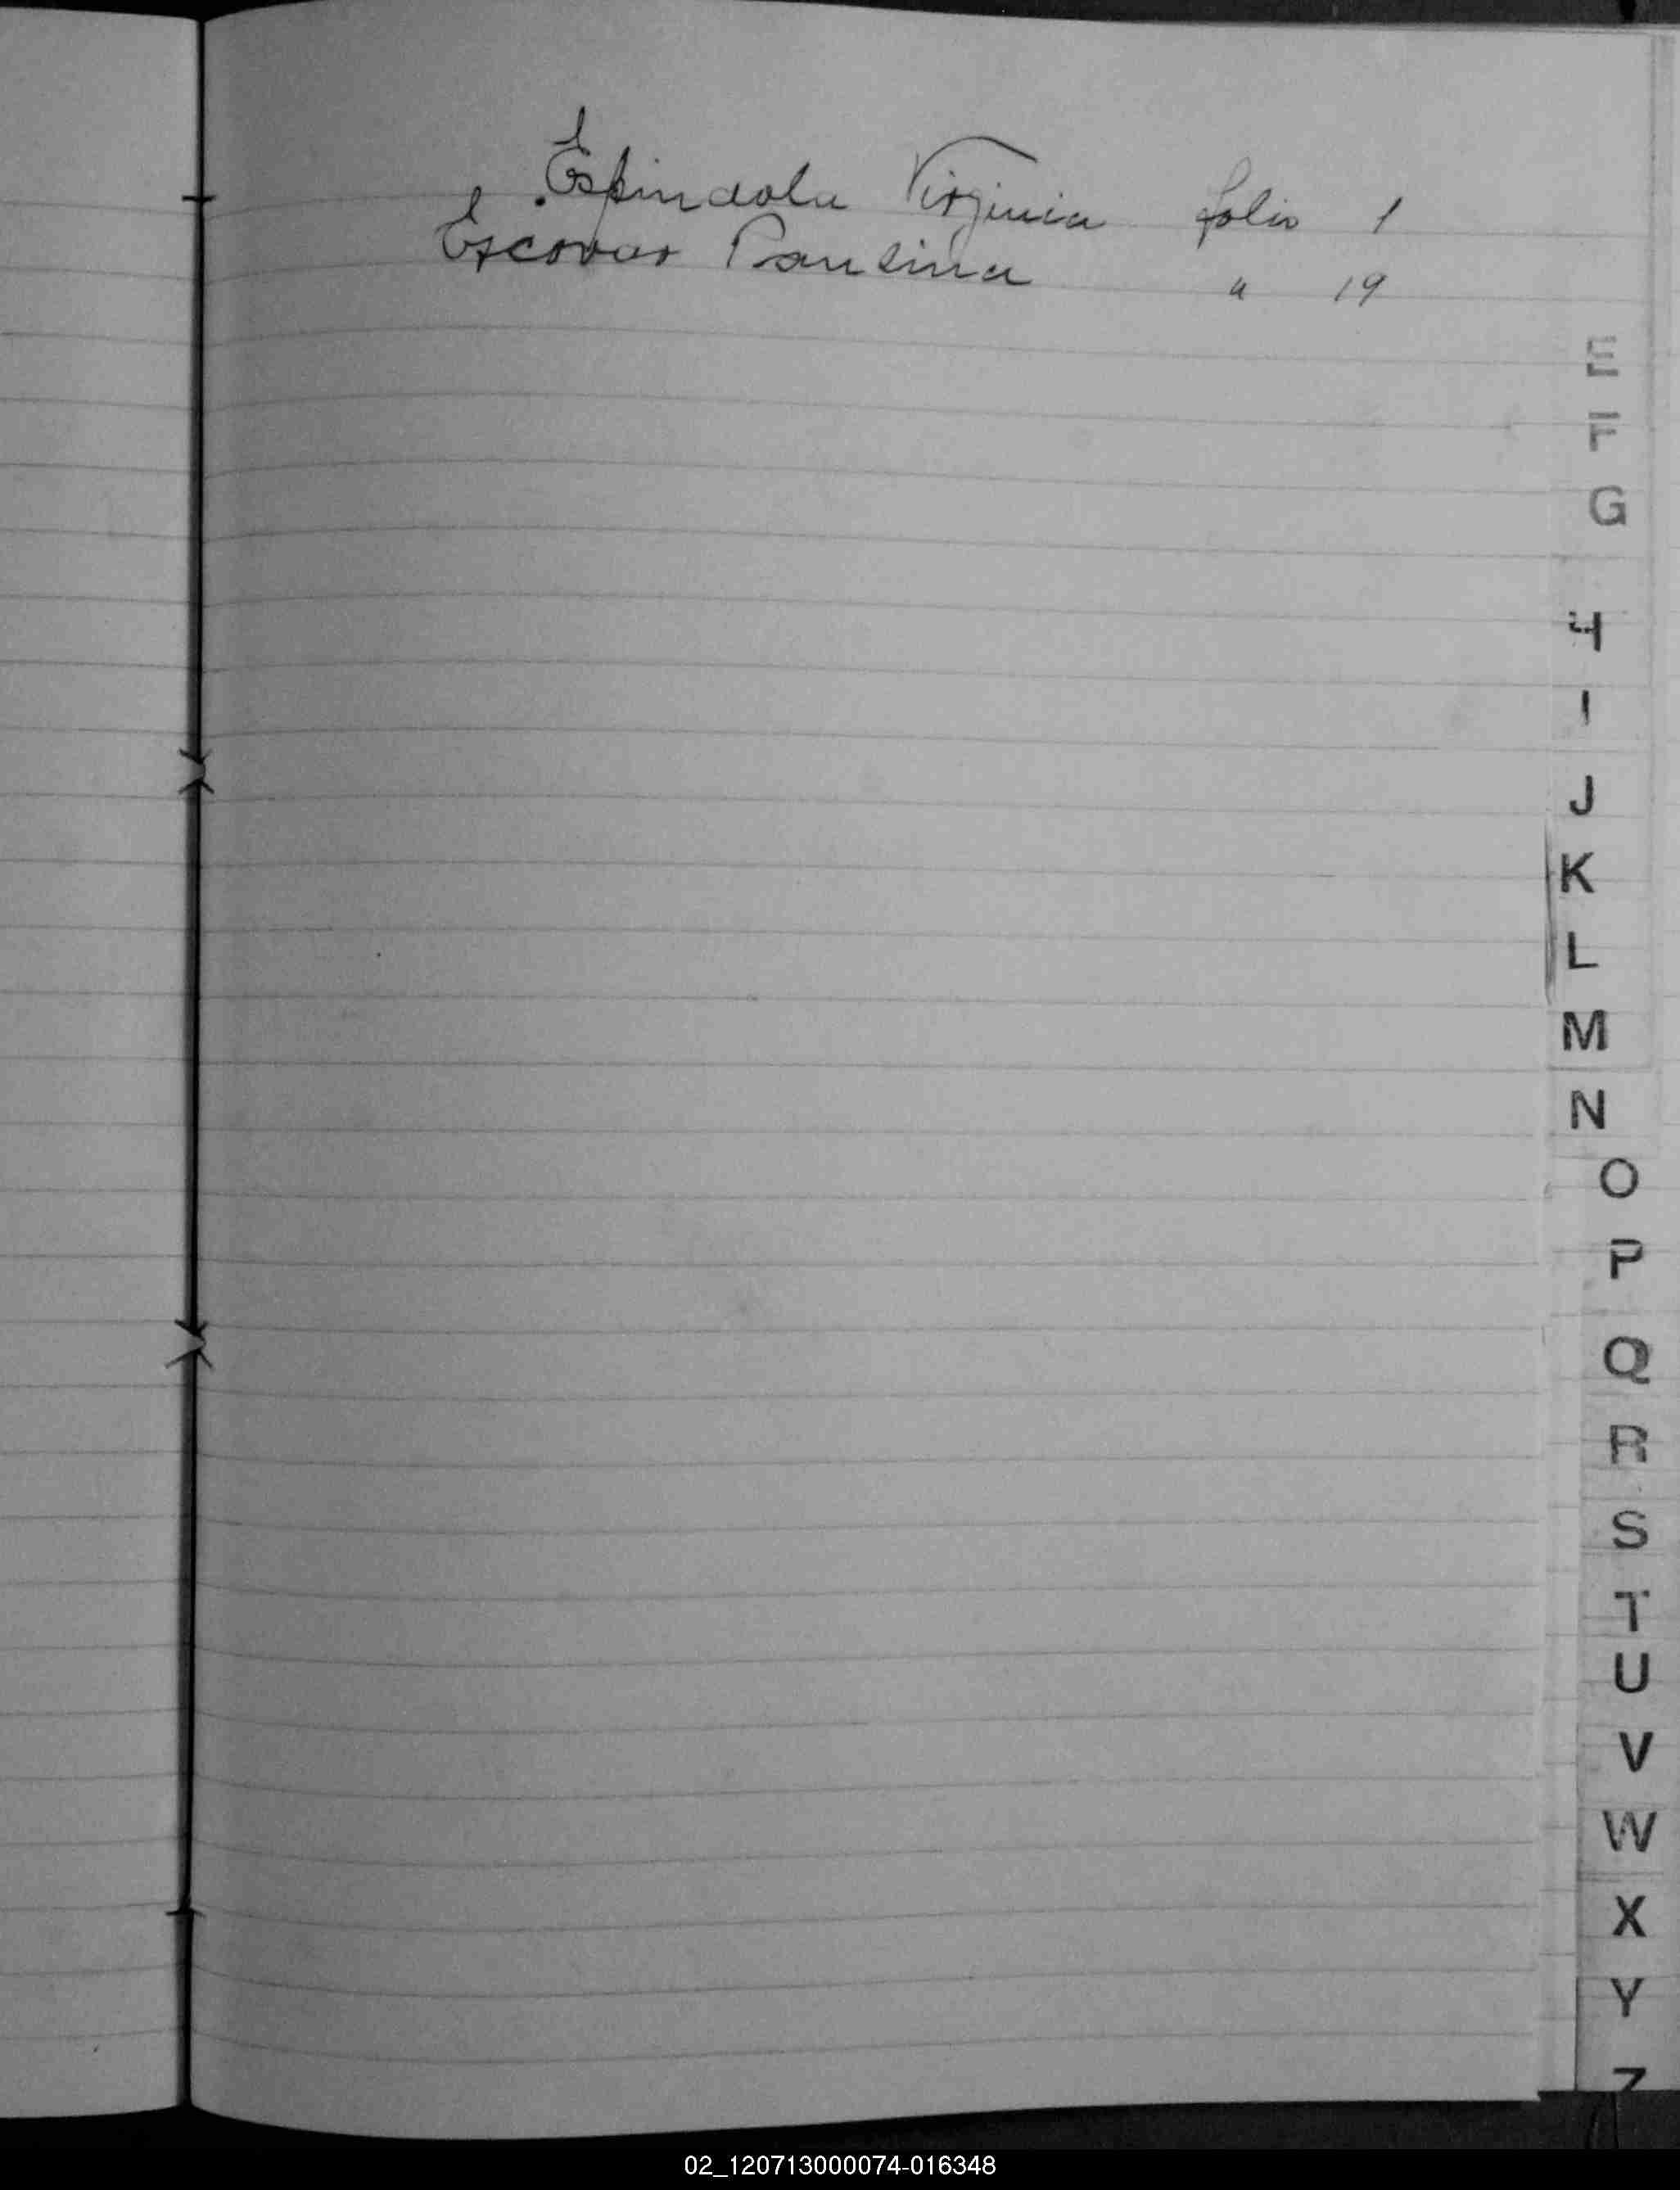 Espindola Virginia folio 1
Escovar Paulina " 19
E
F
G
H
I
J
K
L
M
N
O
P
Q
R
S
T
U
V
W
X
Y
Z
02_120713000074-016348